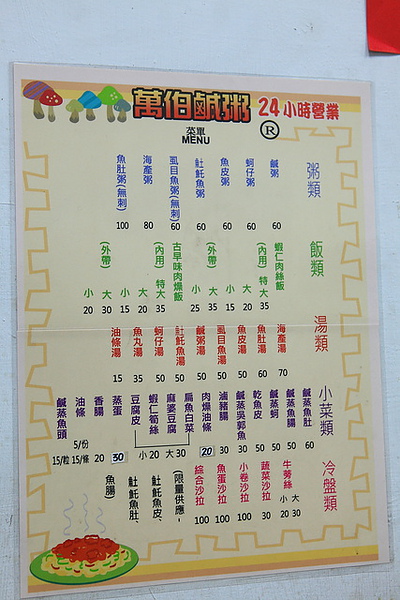 萬伯鹹粥 24小時營業
菜單
MENU
®
粥類
鹹粥 60
蚵仔粥 60
魚皮粥 60
𩵚魠魚粥 60
虱目魚粥(無刺) 60
海產粥 80
魚肚粥(無刺) 100
飯類
蝦仁肉絲飯
(內用) 特大 35
大 20
小 15
(外帶) 大 35
小 25
古早味肉燥飯
(內用) 特大 35
大 20
小 15
(外帶) 大 30
小 20
湯類
海產湯 70
魚肚湯 60
魚皮湯 50
虱目魚湯 50
鹹粥湯 50
𩵚魠魚湯 50
蚵仔湯 50
魚丸湯 35
油條湯 15
小菜類
鹹蒸魚肚 50
鹹蒸魚腸 50
鹹蒸蚵 50
乾魚皮 50
鹹蒸吳郭魚 30
滷豬腸 30
肉燥油條 20
扁魚白菜
麻婆豆腐
蝦仁筍絲
豆腐皮
小20 大30
蒸蛋 30
香腸 20
油條 5/份 15/條
鹹蒸魚頭 15/粒
冷盤類
牛蒡絲 大30 小20
蔬菜沙拉 30
小卷沙拉 100
魚蛋沙拉 100
綜合沙拉 100
(限量供應-
𩵚魠魚皮、
𩵚魠魚肚、
魚腸